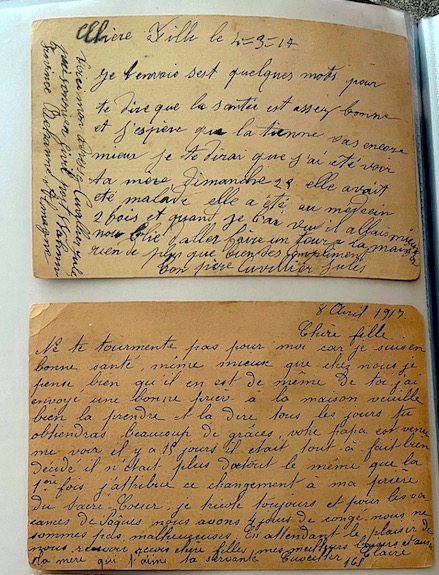 Chère Fille le 4-3-17
je t'envoie sest quelques mots pour
te dire que la santée est assez bonne
et j'espère que la tienne vas encore
mieux je te dirai que j'ai été voir
ta mère Dimanche elle avait
été malade elle a été au médecin
2 fois et quand je l'ai vu il allais mieux
nous allé faire un tour a la
rien de plus que bien des compliment
ton père Cuvillier Jules
Voici mon adresse Cuvillier Jules
prisonnier civil
8 Avril 1917
Chère fille
Ne te tourmente pas pour moi car je suis en
bonne santé, même mieux que chez nous je
pense bien qu'il en est de même de toi, j'ai
envoyé une bonne prière à la maison veuille
bien la prendre et la dire tous les jours tu
obtiendras beaucoup de grâces, votre papa est venu
me voir il y a 15 jours il était tout à fait bien
décidé il n'était plus du tout le même que la
1ère fois j'attribue ce changement à ma prière
du Sacré Coeur, je tricote toujours et pour les va
cances de Pâques nous avons 4 jours de congé nous ne
sommes pas malheureuses. En attendant le plaisir de
nous revoir chère fille, mes meilleurs
ta mère qui t'aime ta servante Cuvillier Claire